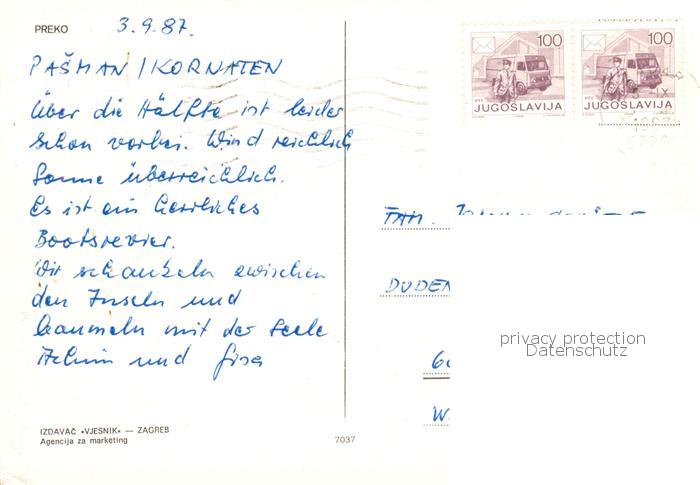 PREKO
3.9.87.
PAŠMAN / KORNATEN
Über die Hälfte ist leider
schon vorbei. Wind reichlich
Sonne überreichlich.
Es ist ein herrliches
Bootsrevier.
Wir schaukeln zwischen
den Inseln und
baumeln mit der Seele
Achim und Gisa
IZDAVAČ »VJESNIK« — ZAGREB
Agencija za marketing
7037
100
100
PTT JUGOSLAVIJA
PTT JUGOSLAVIJA
IX
FAM.
DUDEN
W.
privacy protection
Datenschutz